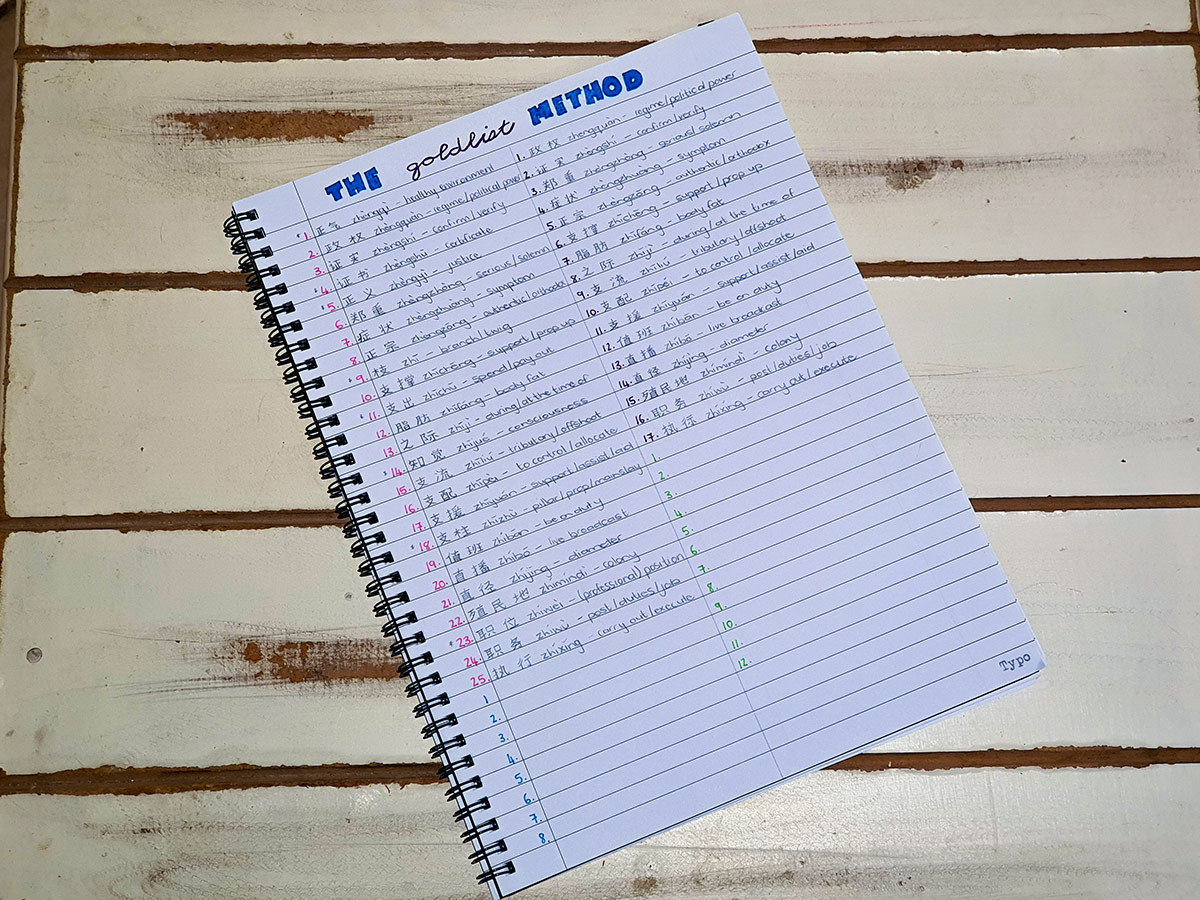 THE goldlist METHOD
*1. 正气 zhèngqì - healthy environment
2. 政权 zhèngquán - regime/political power
3. 证实 zhèngshí - confirm/verify
*4. 证书 zhèngshū - certificate
*5. 正义 zhèngyì - justice
6. 郑重 zhèngzhòng - serious/solemn
7. 症状 zhèngzhuàng - symptom
8. 正宗 zhèngzōng - authentic/orthodox
*9. 枝 zhī - branch/twig
10. 支撑 zhīchēng - support/prop up
*11. 支出 zhīchū - spend/pay out
12. 脂肪 zhīfáng - body fat
13. 之际 zhījì - during/at the time of
*14. 知觉 zhījué - consciousness
15. 支流 zhīliú - tributary/offshoot
16. 支配 zhīpèi - to control/allocate
17. 支援 zhīyuán - support/assist/aid
*18. 支柱 zhīzhù - pillar/prop/mainstay
19. 值班 zhíbān - be on duty
20. 直播 zhíbō - live broadcast
21. 直径 zhíjìng - diameter
22. 殖民地 zhímíndì - colony
*23. 职位 zhíwèi - (professional) position
24. 职务 zhíwù - post/duties/job
25. 执行 zhíxíng - carry out/execute
1
2.
3.
4.
5.
6.
7.
8.
1. 政权 zhèngquán - regime/political power
2. 证实 zhèngshí - confirm/verify
3. 郑重 zhèngzhòng - serious/solemn
4. 症状 zhèngzhuàng - symptom
5. 正宗 zhèngzōng - authentic/orthodox
6. 支撑 zhīchēng - support/prop up
7. 脂肪 zhīfáng - body fat
8. 之际 zhījì - during/at the time of
9. 支流 zhīliú - tributary/offshoot
10. 支配 zhīpèi - to control/allocate
11. 支援 zhīyuán - support/assist/aid
12. 值班 zhíbān - be on duty
13. 直播 zhíbō - live broadcast
14. 直径 zhíjìng - diameter
15. 殖民地 zhímíndì - colony
16. 职务 zhíwù - post/duties/job
17. 执行 zhíxíng - carry out/execute
1.
2.
3.
4.
5.
6.
7.
8.
9.
10.
11.
12.
Typo